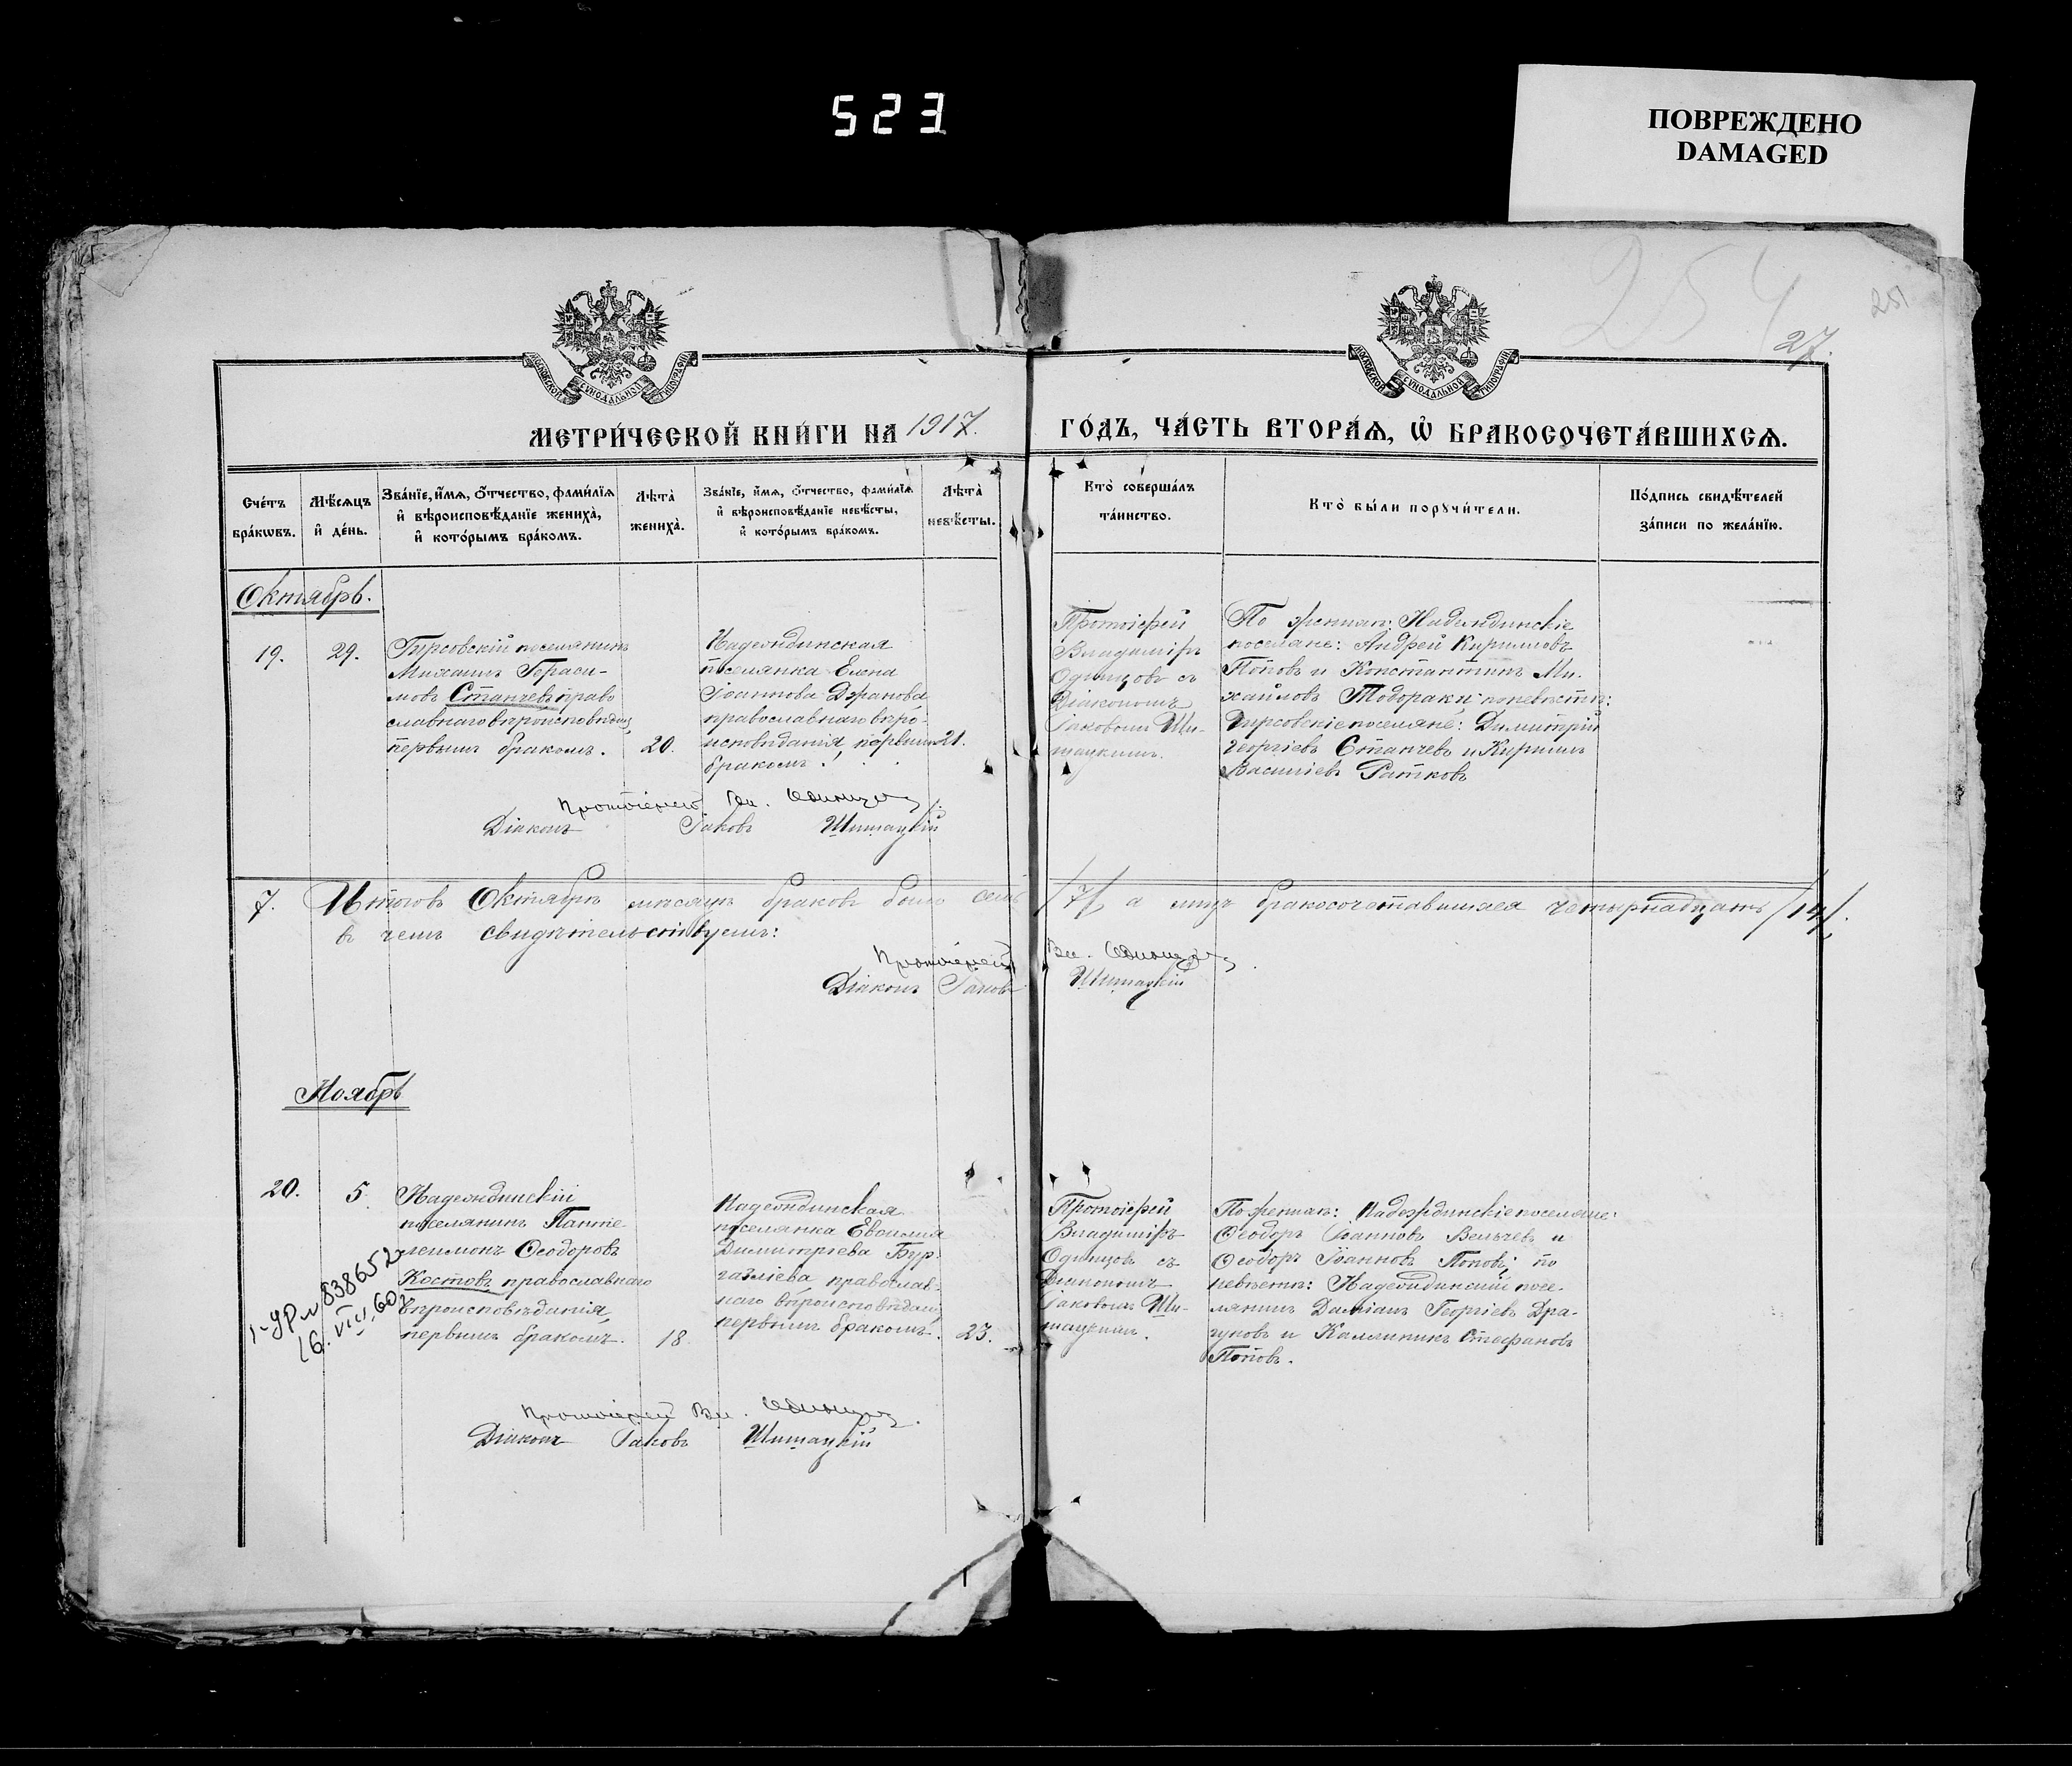 523
ПОВРЕЖДЕНО
DAMAGED
254
251
27.
МОСКОВСКОЙ СУНОДАЛЬНОЙ ТИПОГРАФІИ
МОСКОВСКОЙ СУНОДАЛЬНОЙ ТИПОГРАФІИ
МЕТРИ́ЧЕСКОЙ КНИ́ГИ НА 1917.
ГО́ДЪ, ЧА́СТЬ ВТОРА́Ѧ, Ѡ҆ БРАКОСОЧЕТА́ВШИХСѦ.
Сче́тъ
бра́кѡвъ.
Мѣ́сѧцъ
и҆ де́нь.
Зва́нїе, и҆́мѧ, ѻ҆́тчество, фами́лїѧ
и҆ вѣроисповѣ́данїе жениха̀,
и҆ кото́рымъ бра́комъ.
Лѣта̀
жениха̀.
Зва́нїе, и҆́мѧ, ѻ҆́тчество, фами́лїѧ
и҆ вѣроисповѣ́данїе невѣ́сты,
и҆ кото́рымъ бра́комъ.
Лѣта̀
невѣ́сты.
Кто̀ соверша́лъ
та́инство.
Кто̀ бы́ли порꙋчи́тели.
По́дпись свидѣ́телей
за́писи по жела́нїю.
Октябрь.
19.
29.
Гирсовскій поселянинъ
Михаилъ Гераси-
мовъ Станчевъ право
славнаго вѣроисповѣданія
первымъ бракомъ.
20.
Надеждинская
поселянка Елена
Іоаннова Држанова
православнаго вѣро-
исповѣданія, первымъ
бракомъ.
21.
Протоіерей
Владиміръ
Одинцовъ съ
Діакономъ
Іаковомъ Ши-
шацкимъ.
По женихѣ: Надеждинскіе
поселяне: Андрей Кирилловъ
Поповъ и Константинъ Ми-
хайловъ Тодораки; по невѣстѣ:
Гирсовскіе поселяне: Димитрій
Георгіевъ Станчевъ и Кириллъ
Василіевъ Ратковъ
Протоіерей Вл. Одинцовъ
Діаконъ Іаковъ Шишацкій
7. Итого въ Октябрѣ мѣсяцѣ браковъ было семь /7/, а лицъ бракосочетавшихся четырнадцать /14/.
въ чемъ свидѣтельствуемъ:
Протоіерей Вл. Одинцовъ.
Діаконъ Іаковъ Шишацкій
Ноябрь
20.
5.
Надеждинскій
поселянинъ Панте-
леимонъ Ѳеодоровъ
Костовъ православнаго
вѣроисповѣданія,
первымъ бракомъ.
18.
Надеждинская
поселянка Евѳимія
Димитріева Бур-
газліева православ-
наго вѣроисповѣданія
первымъ бракомъ.
23.
Протоіерей
Владиміръ
Одинцовъ съ
Діакономъ
Іаковомъ Ши-
шацкимъ.
По женихѣ: Надеждинскіе поселяне:
Ѳеодоръ Іоанновъ Вельчевъ и
Ѳеодоръ Іоанновъ Поповъ; по
невѣстѣ: Надеждинскій посе-
лянинъ Даміанъ Георгіевъ Дра-
гуновъ и Каллиникъ Стефановъ
Поповъ.
838652
16.VIII.60
Протоіерей Вл. Одинцовъ.
Діаконъ Іаковъ Шишацкій